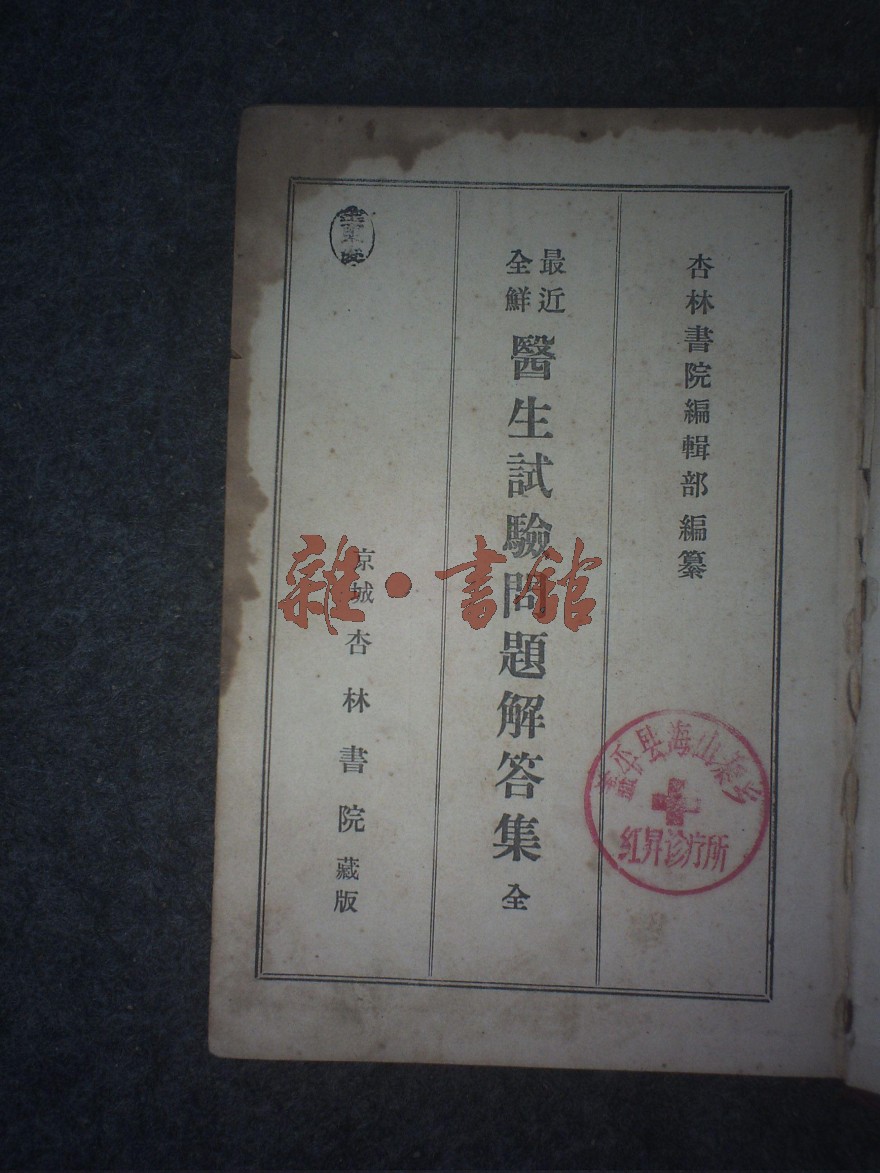 杏林書院編輯部編纂
最近
全鮮
醫生試驗問題解答集全
京城杏林書院藏版
雜·書館
海山寨乡
红昇诊疗所